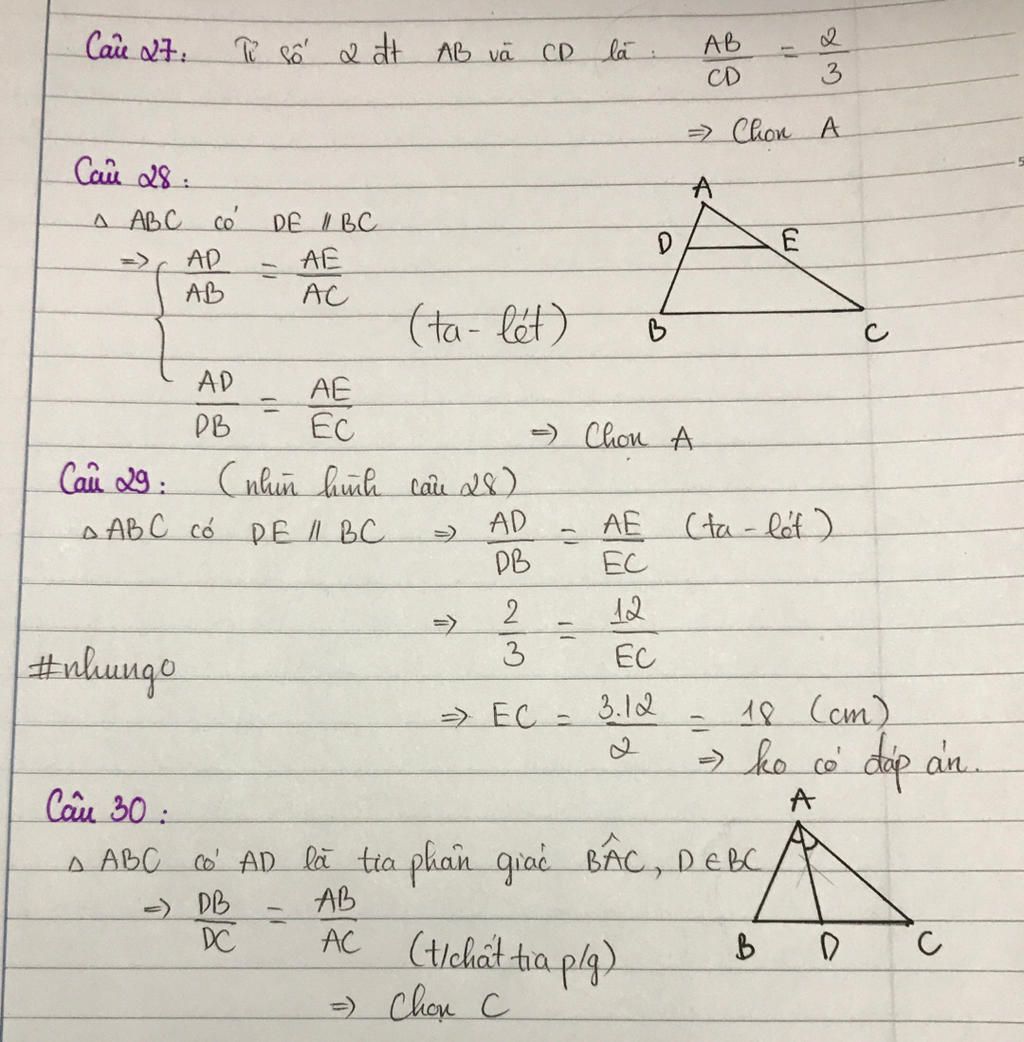 Câu 27: Tỉ số 2 đt AB và CD là : AB/CD = 2/3
=> Chọn A
Câu 28 :
△ ABC có DE // BC
=> { AD/AB = AE/AC
(ta - lét)
AD/DB = AE/EC
=> Chọn A
A
D E
B C
Câu 29 : (nhìn hình câu 28)
△ ABC có DE // BC => AD/DB = AE/EC (ta - lét)
=> 2/3 = 12/EC
#nhungo
=> EC = 3.12/2 = 18 (cm)
=> ko có đáp án.
Câu 30 :
△ ABC có AD là tia phân giác BÂC, D ∈ BC
=> DB/DC = AB/AC
(t/chất tia p/g)
=> Chọn C
A
B D C
5